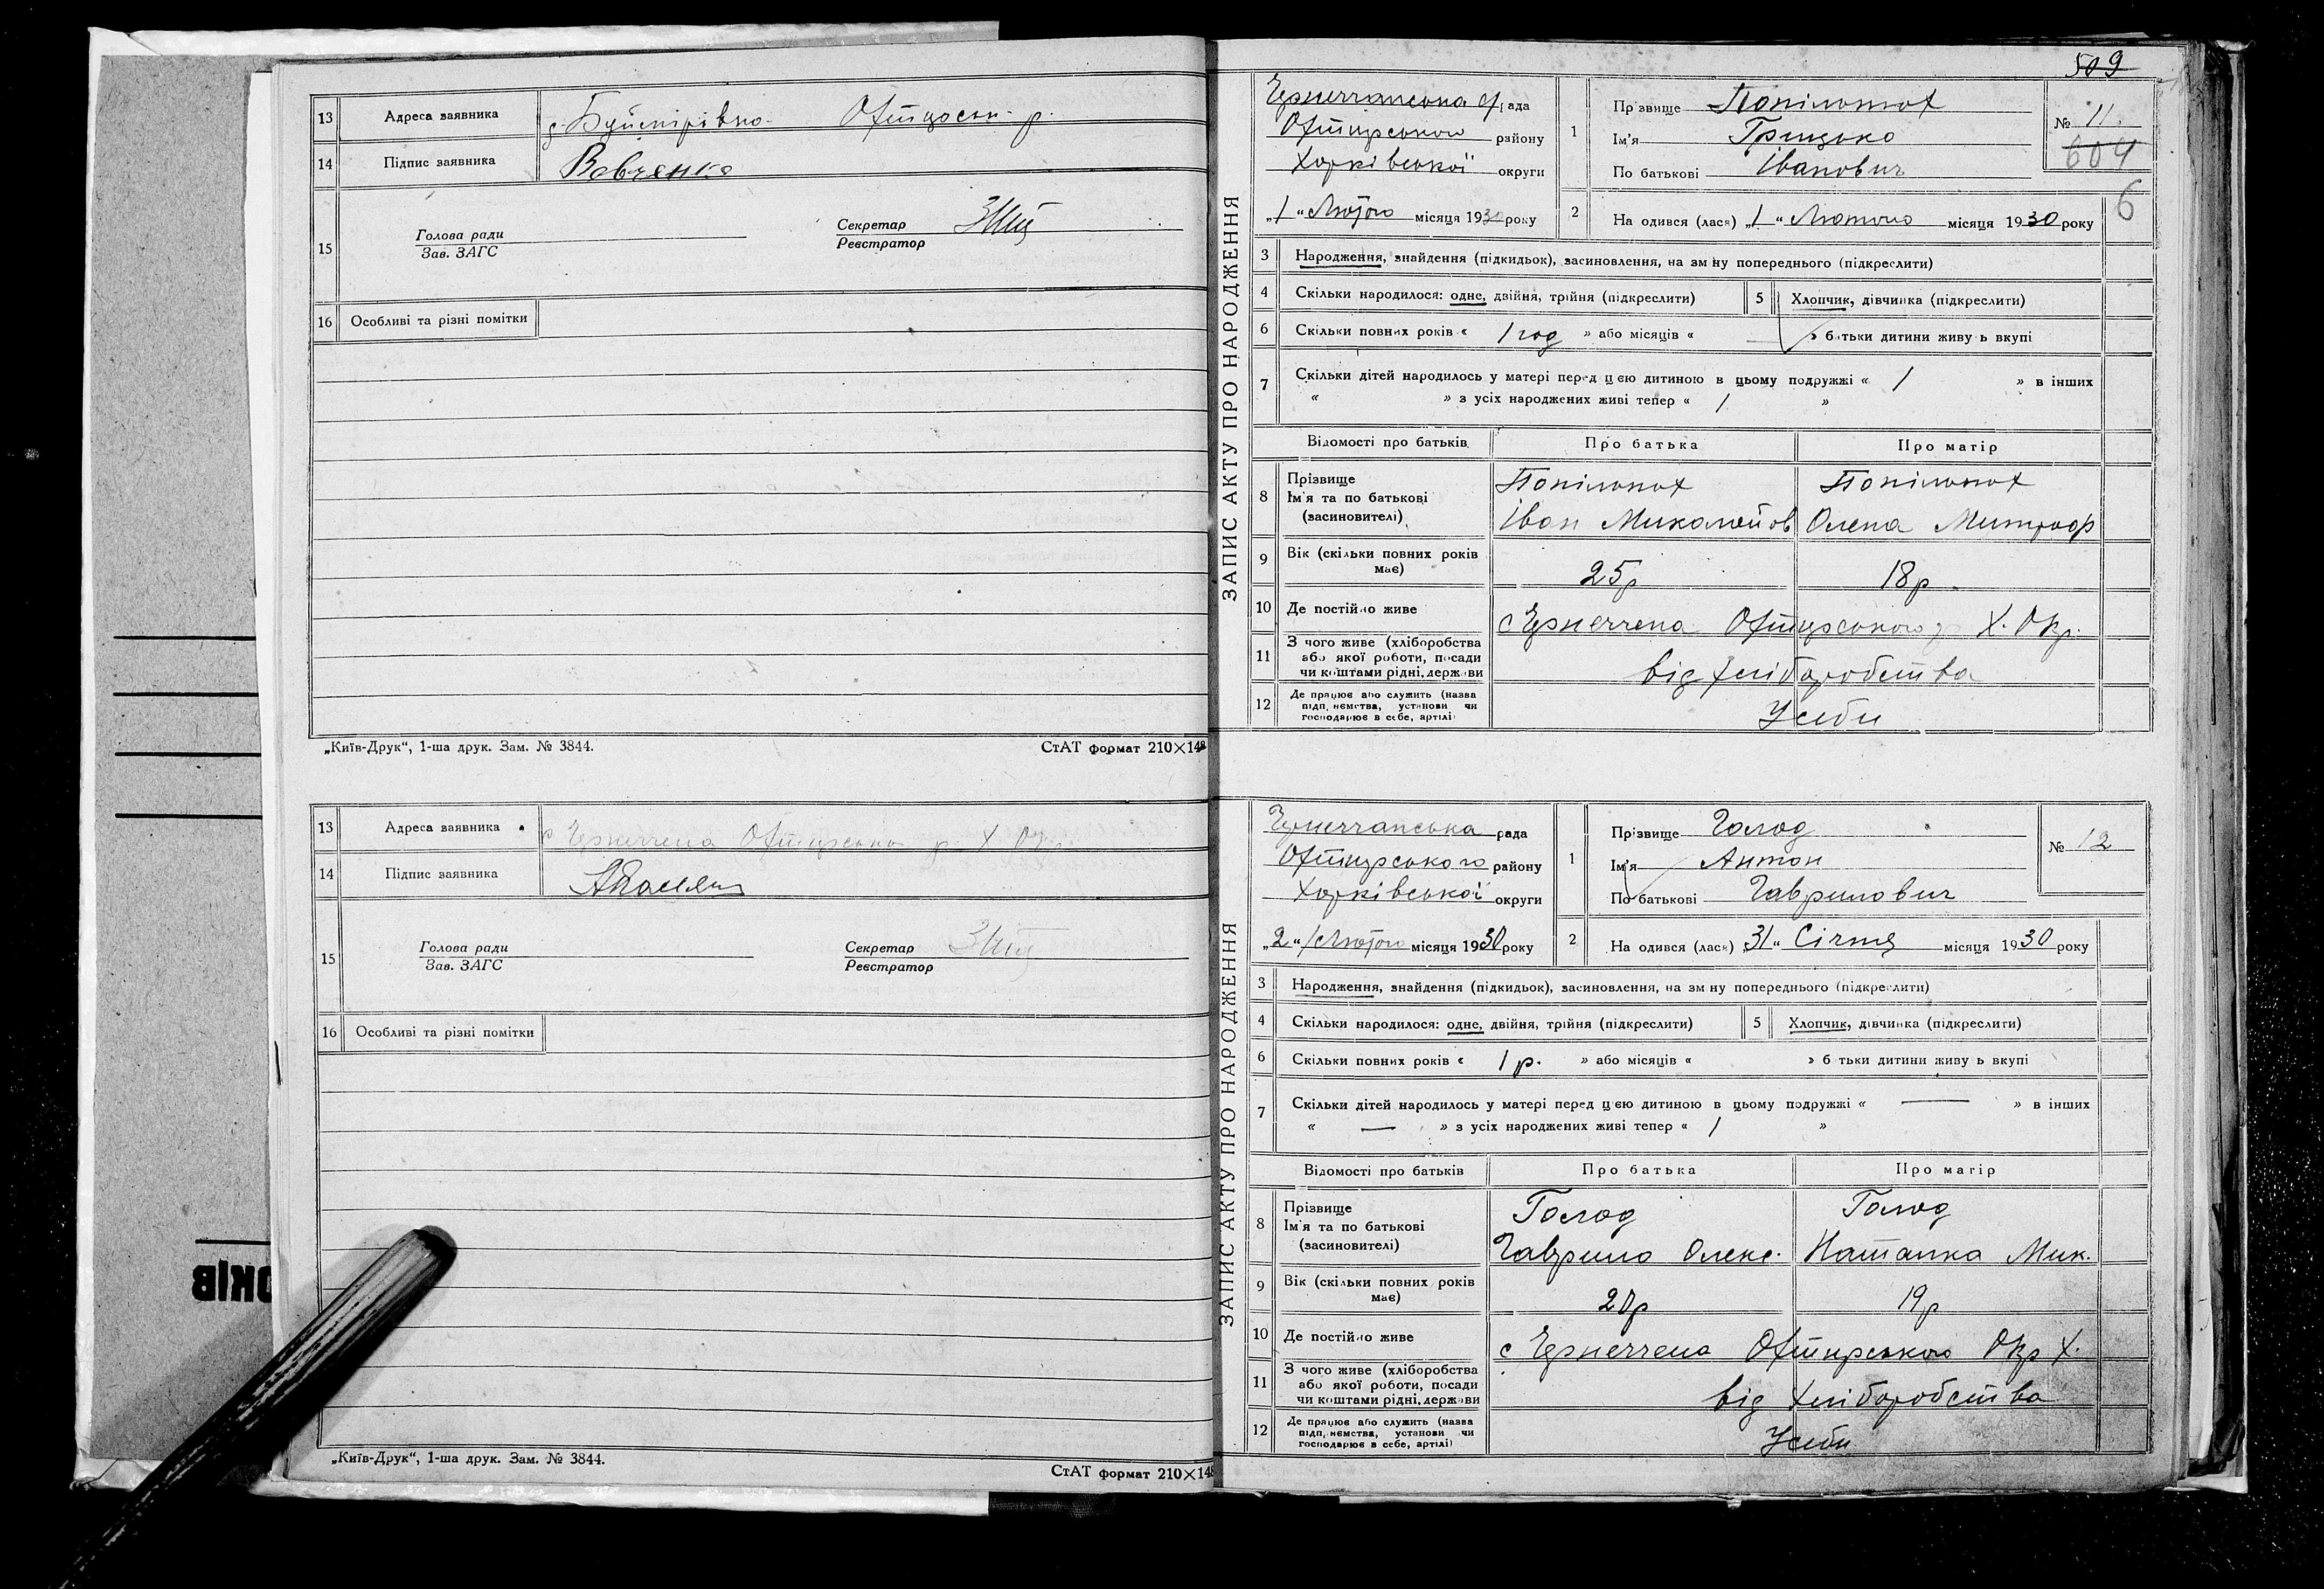 13 Адреса заявника Охтирськ. р.
14 Підпис заявника Вовченко
15 Голова ради
Зав. ЗАГС
Секретар
Реєстратор
16 Особливі та різні помітки
„Київ-Друк“, 1-ша друк. Зам. № 3844.
СтАТ формат 210×148
13 Адреса заявника с Чернеччена Охтирського р. Х Окр.
14 Підпис заявника
15 Голова ради
Зав. ЗАГС
Секретар
Реєстратор
16 Особливі та різні помітки
„Київ-Друк“, 1-ша друк. Зам. № 3844.
СтАТ формат 210×148
ОКІВ
509
ЗАПИС АКТУ ПРО НАРОДЖЕННЯ
Чернеччанська с/рада
Охтирського району
Харківської округи
„1“ Лютого місяця 1930 року
1 Прізвище
Ім'я Грицько
По батькові Іванович
№ 11.
604
6
2 На одився (лася) „1“ Лютого місяця 1930 року
3 Народження, знайдення (підкидьок), засиновлення, на зм ну попереднього (підкреслити)
4 Скільки народилося: одне, двійня, трійня (підкреслити)
5 Хлопчик, дівчинка (підкреслити)
6 Скільки повних років « 1 год » або місяців « — » батьки дитини живу ь вкупі
7 Скільки дітей народилось у матері перед цією дитиною в цьому подружжі « 1 » в інших
« » з усіх народжених живі тепер « 1 »
Відомості про батьків Про батька Про матір
8 Прізвище
Ім'я та по батькові
(засиновителі)
Іван Миколайов Олена Митроф
9 Вік (скільки повних років має) 25р 18р
10 Де постійно живе с Чернеччена Охтирського р Х. Окр.
11 З чого живе (хліборобства
або якої роботи, посади
чи коштами рідні, держави
від хліборобства
12 Де працює або служить (назва
підп, иємства, установи чи
господарює в себе, артілі)
Усеби
ЗАПИС АКТУ ПРО НАРОДЖЕННЯ
Чернеччанська рада
Охтирського району
Харківської округи
„2“ Лютого місяця 1930 року
1 Прізвище Голод
Ім'я Антон
По батькові Гаврилович
№ 12
2 На одився (лася) „31“ Січня місяця 1930 року
3 Народження, знайдення (підкидьок), засиновлення, на зм ну попереднього (підкреслити)
4 Скільки народилося: одне, двійня, трійня (підкреслити)
5 Хлопчик, дівчинка (підкреслити)
6 Скільки повних років « 1 р. » або місяців « » б тьки дитини живу ь вкупі
7 Скільки дітей народилось у матері перед цією дитиною в цьому подружжі « — » в інших
« — » з усіх народжених живі тепер « 1 »
Відомості про батьків Про батька Про матір
8 Прізвище
Ім'я та по батькові
(засиновителі)
Голод Голод
Гаврило Олекс. Наталка Мик.
9 Вік (скільки повних років має) 20р 19р
10 Де постійно живе с Чернеччена Охтирського Окр Х.
11 З чого живе (хліборобства
або якої роботи, посади
чи коштами рідні, держави
від хліборобства
12 Де працює або служить (назва
підп, иємства, установи чи
господарює в себе, артілі)
Усеби